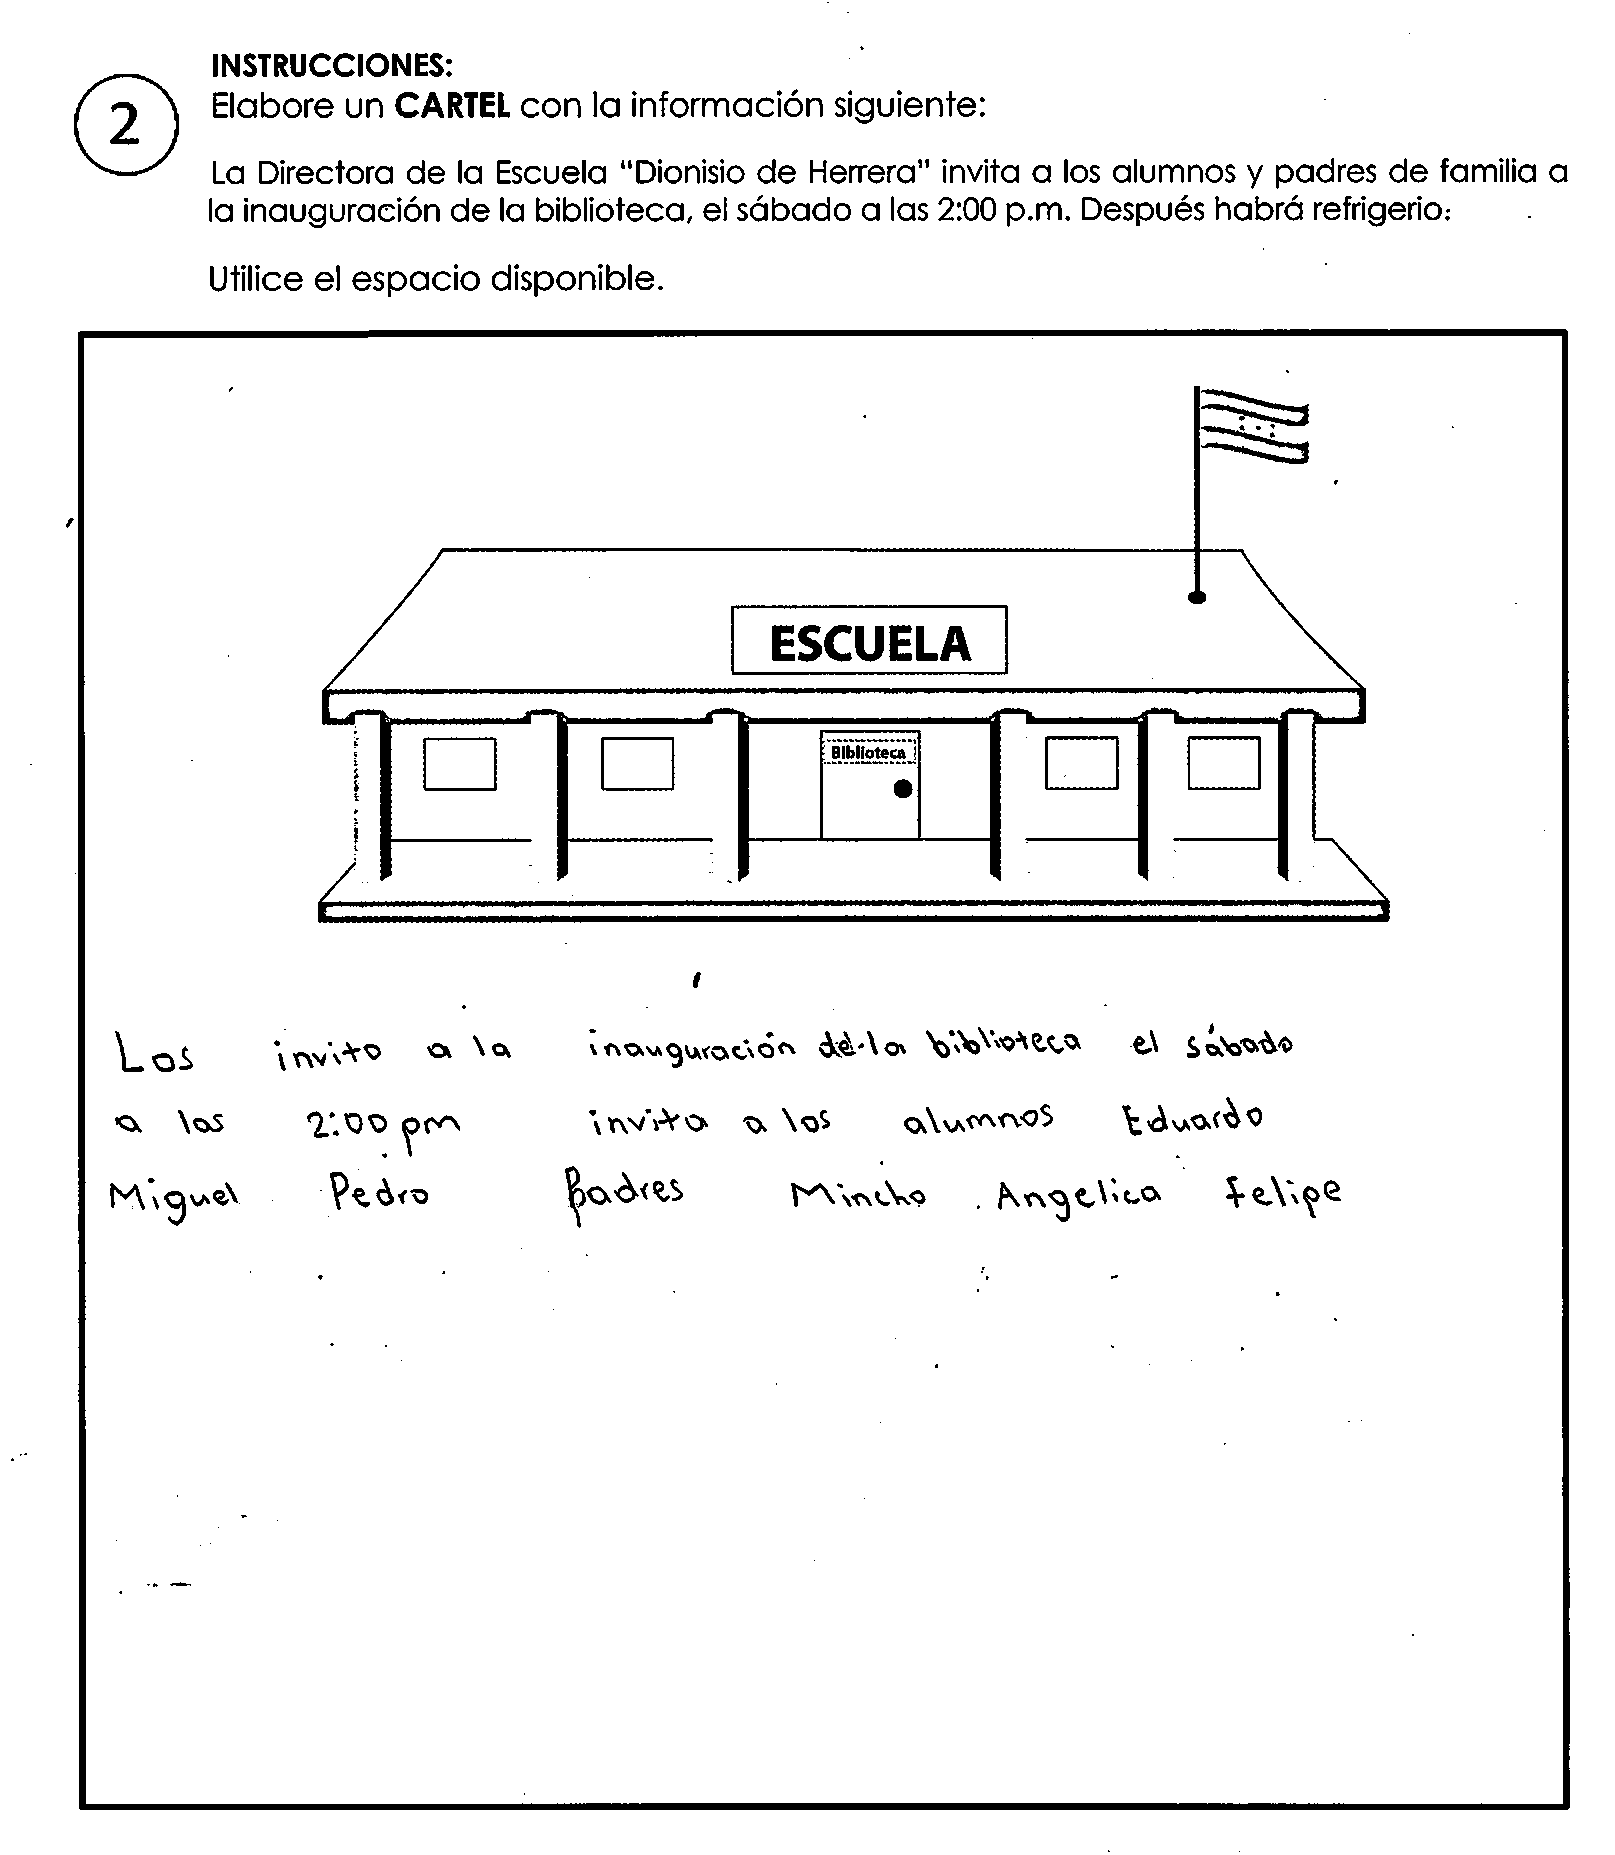 INSTRUCCIONES:
2
Elabore un CARTEL con la información siguiente:
La Directora de la Escuela "Dionisio de Herrera" invita a los alumnos y padres de familia a
la inauguración de la biblioteca, el sábado a las 2:00 p.m. Después habrá refrigerio.
Utilice el espacio disponible.
ESCUELA
Biblioteca
Los invito a la inauguración de la biblioteca el sábado
a las 2:00 pm invita a los alumnos Eduardo
Miguel Pedro Padres Mincho Angelica Felipe